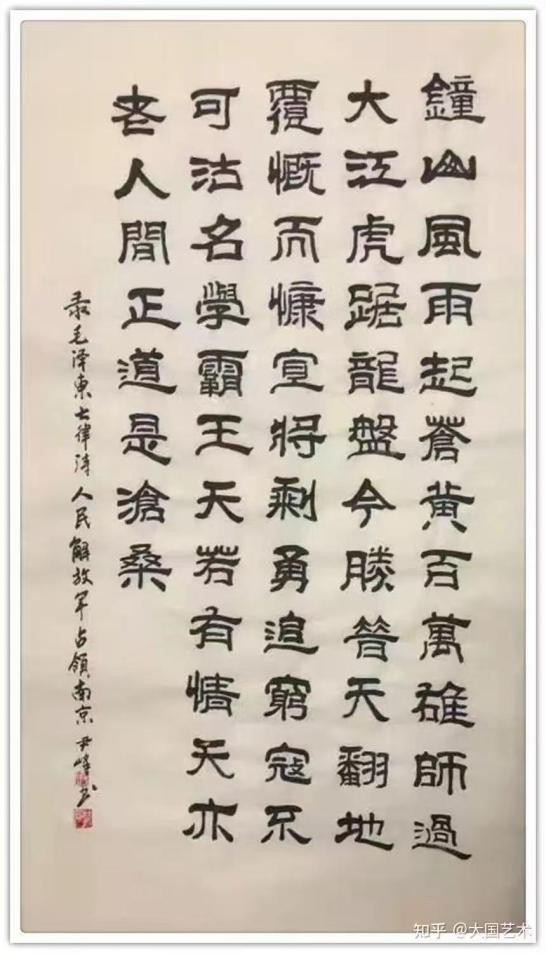 鐘山風雨起蒼黃百萬雄師過
大江虎踞龍盤今勝昔天翻地
覆慨而慷宜將剩勇追窮寇不
可沽名學霸王天若有情天亦
老人間正道是滄桑
录毛泽東七律诗 人民解放军占領南京 尹 书
知乎 @大国艺术